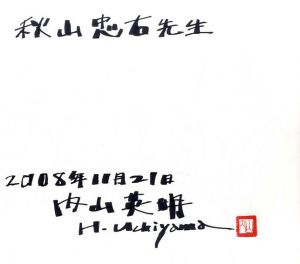 秋山忠右先生
2008年11月21日
内山英明
H. Uchiyama